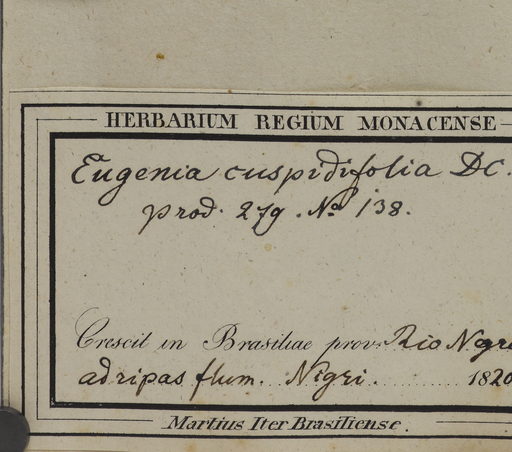 HERBARIUM REGIUM MONACENSE
Eugenia cuspidifolia DC.
prod. 279. No 138.
Crescit in Brasiliae prov. Rio Negro
ad ripas flum. Nigri. 1820
Martius Iter Brasiliense.